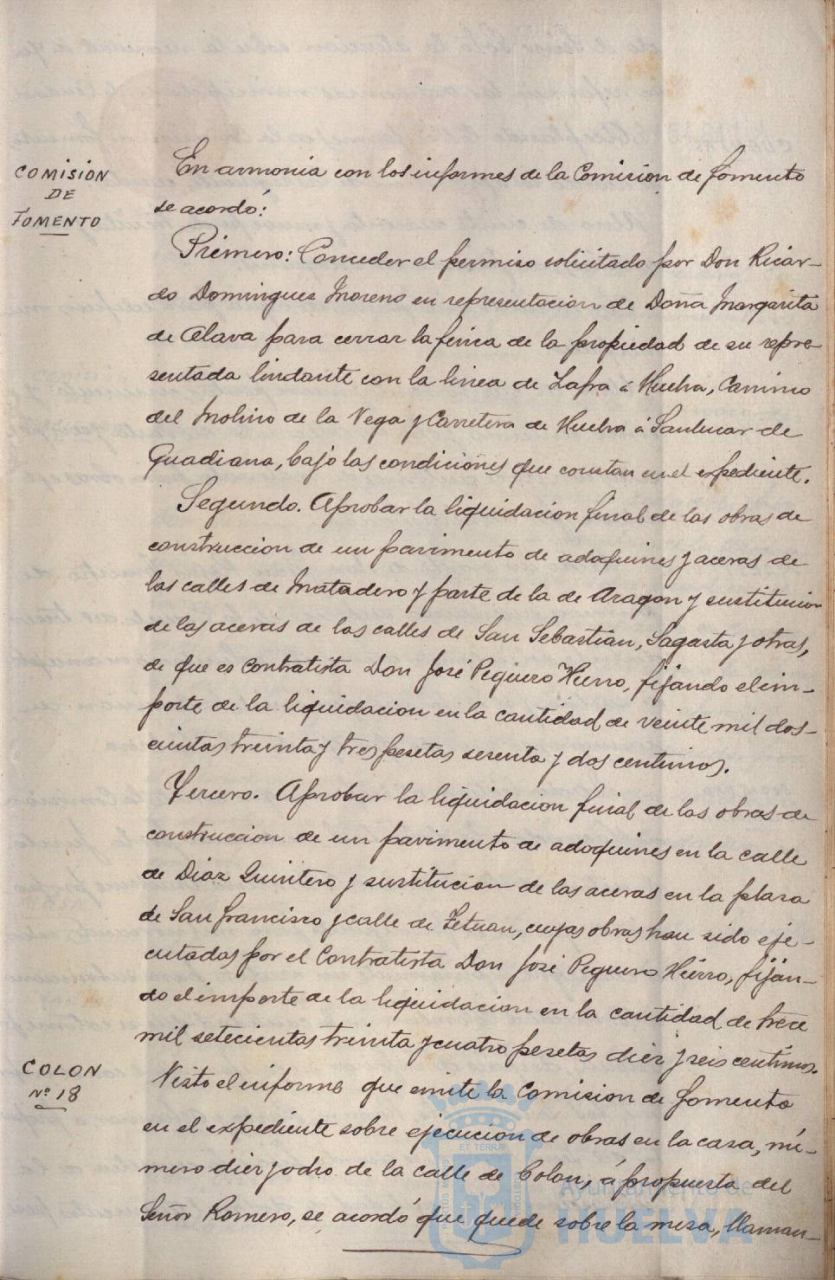 COMISIÓN
DE
FOMENTO
En armonia con los informes de la Comision de fomento
se acordó:
Primero: Conceder el permiso solicitado por Don Ricar-
do Dominguez Moreno en representacion de Doña Margarita
de Alava para cerrar la finca de la propiedad de su repre-
sentada lindante con la linea de Zafra á Huelva, Camino
del Molino de la Vega y Carretera de Huelva á Sanlucar de
Guadiana, bajo las condiciones que constan en el expediente.
Segundo. Aprobar la liquidacion final de las obras de
construccion de un pavimento de adoquines y aceras de
las calles de Matadero y parte de la de Aragon y sustitucion
de las aceras de las calles de San Sebastian, Sagasta y otras,
de que es contratista Don José Peguero Hierro, fijando el im-
porte de la liquidacion en la cantidad de veinte mil dos-
cientas treinta y tres pesetas sesenta y dos centimos.
Tercero. Aprobar la liquidacion final de las obras de
construccion de un pavimento de adoquines en la calle
de Diaz Quintero y sustitucion de las aceras en la plaza
de San francisco y calle de Tetuan, cuyas obras han sido eje-
cutadas por el Contratista Don José Peguero Hierro, fiján-
do el importe de la liquidacion en la cantidad de trece
mil setecientas treinta y cuatro pesetas diez y seis centimos.
COLON
Nº 18
Visto el informe que emite la Comision de fomento
en el expediente sobre ejecucion de obras en la casa, nú-
mero diez y ocho de la calle de Colon, á propuesta del
Señor Romero, se acordó que quede sobre la mesa, llaman-
ET TERRA
Ayuntamiento de
HUELVA